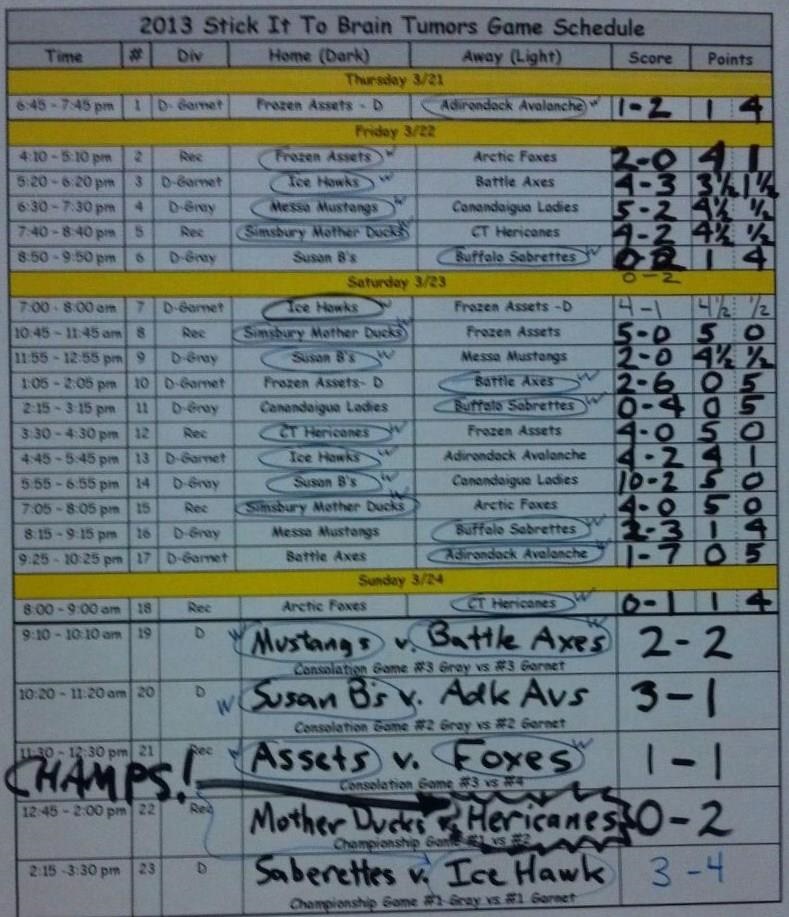 2013 Stick It To Brain Tumors Game Schedule
Time # Div Home (Dark) Away (Light) Score Points
Thursday 3/21
6:45 - 7:45 pm 1 D-Garnet Frozen Assets - D Adirondack Avalanche W 1-2 1 4
Friday 3/22
4:10 - 5:10 pm 2 Rec Frozen Assets W Arctic Foxes 2-0 4 1
5:20 - 6:20 pm 3 D-Garnet Ice Hawks W Battle Axes 4-3 3½ 1½
6:30 - 7:30 pm 4 D-Gray Messa Mustangs W Canandaigua Ladies 5-2 4½ ½
7:40 - 8:40 pm 5 Rec Simsbury Mother Ducks W CT Hericanes 4-2 4½ ½
8:50 - 9:50 pm 6 D-Gray Susan B's Buffalo Sabrettes W 1 4
0-2
Saturday 3/23
7:00 - 8:00 am 7 D-Garnet Ice Hawks W Frozen Assets -D 4-1 4½ ½
10:45 - 11:45 am 8 Rec Simsbury Mother Ducks W Frozen Assets 5-0 5 0
11:55 - 12:55 pm 9 D-Gray Susan B's W Messa Mustangs 2-0 4½ ½
1:05 - 2:05 pm 10 D-Garnet Frozen Assets- D Battle Axes W 2-6 0 5
2:15 - 3:15 pm 11 D-Gray Canandaigua Ladies Buffalo Sabrettes W 0-4 0 5
3:30 - 4:30 pm 12 Rec CT Hericanes W Frozen Assets 4-0 5 0
4:45 - 5:45 pm 13 D-Garnet Ice Hawks W Adirondack Avalanche 4-2 4 1
5:55 - 6:55 pm 14 D-Gray Susan B's W Canandaigua Ladies 10-2 5 0
7:05 - 8:05 pm 15 Rec Simsbury Mother Ducks W Arctic Foxes 4-0 5 0
8:15 - 9:15 pm 16 D-Gray Messa Mustangs Buffalo Sabrettes W 2-3 1 4
9:25 - 10:25 pm 17 D-Garnet Battle Axes Adirondack Avalanche W 1-7 0 5
Sunday 3/24
8:00 - 9:00 am 18 Rec Arctic Foxes CT Hericanes W 0-1 1 4
9:10 - 10:10 am 19 D W Mustangs v. Battle Axes W 2-2
Consolation Game #3 Gray vs #3 Garnet
10:20 - 11:20 am 20 D W Susan B's v. Adk Avs 3-1
Consolation Game #2 Gray vs #2 Garnet
11:30 - 12:30 pm 21 Rec W Assets v. Foxes W 1-1
Consolation Game #3 vs #4
CHAMPS!
12:45 - 2:00 pm 22 Rec Mother Ducks v. Hericanes 0-2
Championship Game #1 vs #2
2:15 -3:30 pm 23 D Saberettes v. Ice Hawk 3-4
Championship Game #1 Gray vs #1 Garnet